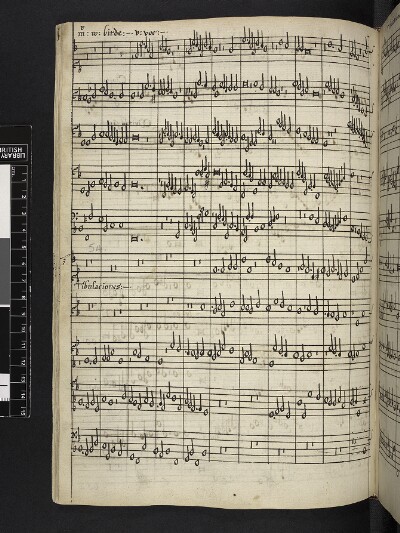 m: w: birde: — v: voc: —
54
Tribulaciones: —
BRITISH
LIBRARY